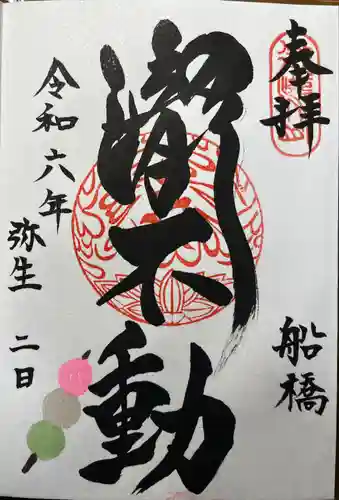 奉拝
船橋
瀧不動
令和六年
弥生 二日